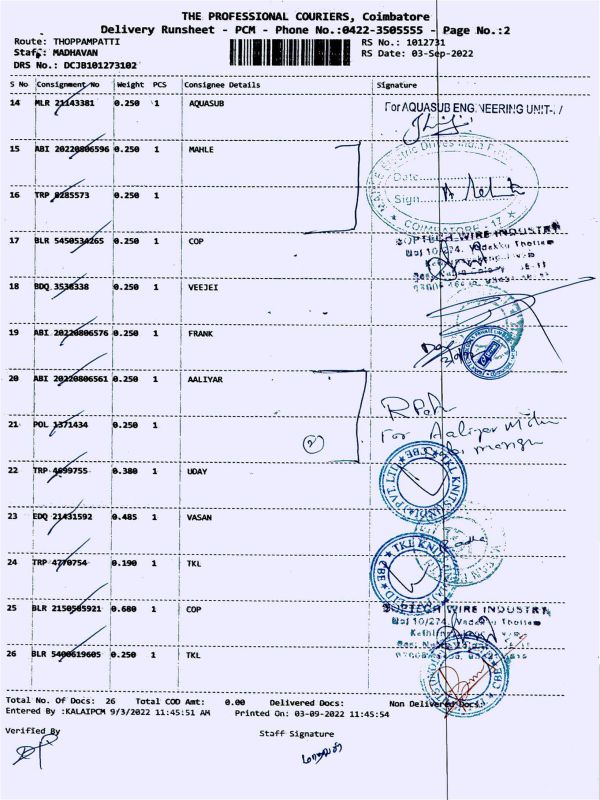 THE PROFESSIONAL COURIERS, Coimbatore
Delivery Runsheet - PCM - Phone No.:0422-3505555 - Page No.:2
Route: THOPPAMPATTI RS No.: 1012731
Staff: MADHAVAN RS Date: 03-Sep-2022
DRS No.: DCJB101273102
S No Consignment No Weight PCS Consignee Details Signature
14 MLR 21143381 0.250 1 AQUASUB For AQUASUB ENGINEERING UNIT-
15 ABI 20220806596 0.250 1 MAHLE
Date
16 TRP 8285573 0.250 1 Sign
COIMBATORE - 17
17 BLR 5450534265 0.250 1 COP SOPTECH WIRE INDUSTRY
No: 10/274, Vadakku Thottam
18 BDQ 3536338 0.250 1 VEEJEI
19 ABI 20220806576 0.250 1 FRANK
20 ABI 20220806561 0.250 1 AALIYAR
21 POL 1371434 0.250 1
2
For Aaliyar
22 TRP 4699755 0.380 1 UDAY
TKL KNITS (INDIA) PVT. LTD CBE
23 EDQ 21431592 0.485 1 VASAN
24 TRP 4770754 0.190 1 TKL
TKL KNITS CBE
25 BLR 2150505921 0.680 1 COP SOPTECH WIRE INDUSTRY
No: 10/274, Vadakku Thottam
26 BLR 5400619605 0.250 1 TKL
CBE
Total No. Of Docs: 26 Total COD Amt: 0.00 Delivered Docs: Non Delivered Docs:
Entered By :KALAIPCM 9/3/2022 11:45:51 AM Printed On: 03-09-2022 11:45:54
Verified By Staff Signature